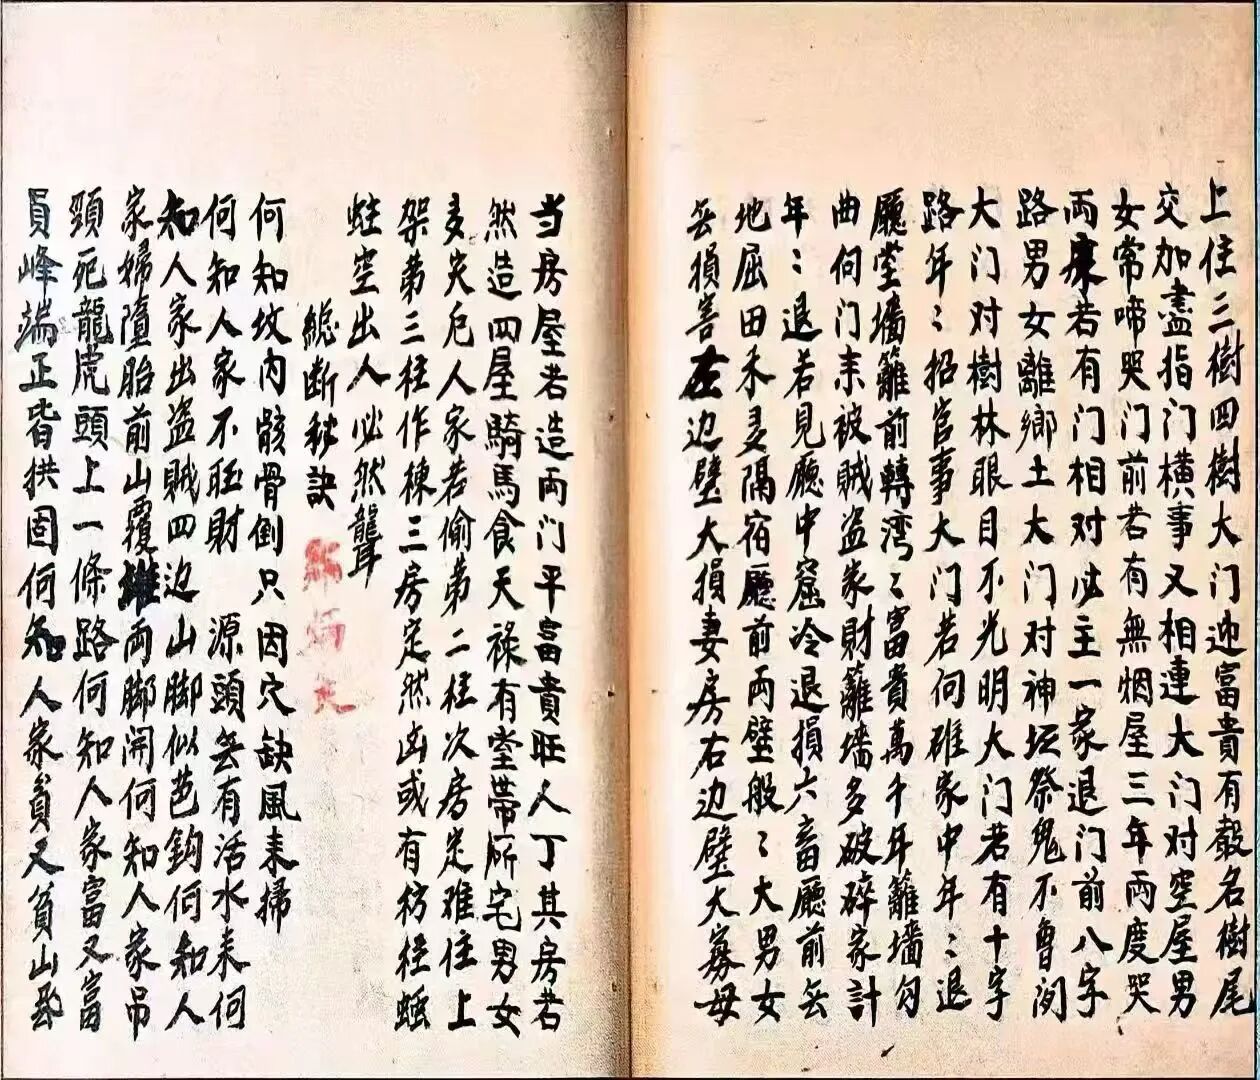 上住三樹四樹大门迎富貴有嗀名樹尾
交加盡指门橫事又相連大门对空屋男
女常啼哭门前若有無烟屋三年两度哭
两若有门相对必主一家退门前八字
路男女離鄉土大门对神坛祭鬼不曾闲
大门对樹林眼目不光明大门若有十字
路年〻招官事大门若何碓家中年〻退
廳堂墻籬前轉湾〻富貴萬千年籬墻勾
曲何门耒被賊盗家財籬墻多破碎家計
年〻退若見廳中窟冷退損六畜廳前无
地屈田禾隔宿廳前两壁般〻大男女
无損害左边壁大損妻房右边壁大寡母
当房屋若造两门平富貴旺人丁其房若
然造四屋騎馬食天祿有堂帶厛宅男女
多灾厄人家若偷第二柱次房定难住上
架第三柱作棟三房定然凶或有枋柱蛀
蛀空出人必然聾
總断秘訣
何知坟内骸骨倒只因穴缺風耒掃
何知人家不旺財 源頭无有活水耒何
知人家出盗賊四边山脚似芭鈎何知人
家婦墮胎前山覆两脚開何知人家吊
頸死龍虎頭上一條路何知人家富又富
員峰端正皆拱固何知人家貧又貧山